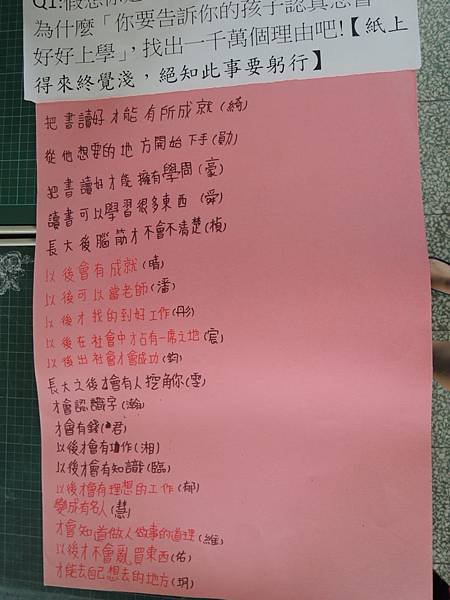 為什麼「你要告訴你的孩子認真念書
好好上學」,找出一千萬個理由吧!【紙上
得來終覺淺,絕知此事要躬行】
把書讀好才能有所成就(綺)
從他想要的地方開始下手(勛)
把書讀好才能擁有學問(豪)
讀書可以學習很多東西(舜)
長大後腦筋才不會不清楚(楨)
以後會有成就(晴)
以後可以當老師(潘)
以後才找的到好工作(彤)
以後在社會中才占有一席之地(宸)
以後出社會才會成功(鈞)
長大之後才會有人挖角你(雯)
才會認識字(瀚)
才會有錢(君)
以後才會有工作(湘)
以後才會有知識(臨)
以後才會有理想的工作(郁)
變成有名人(慧)
才會知道做人做事的道理(維)
以後才不會亂買東西(佑)
才能去自己想去的地方(玥)